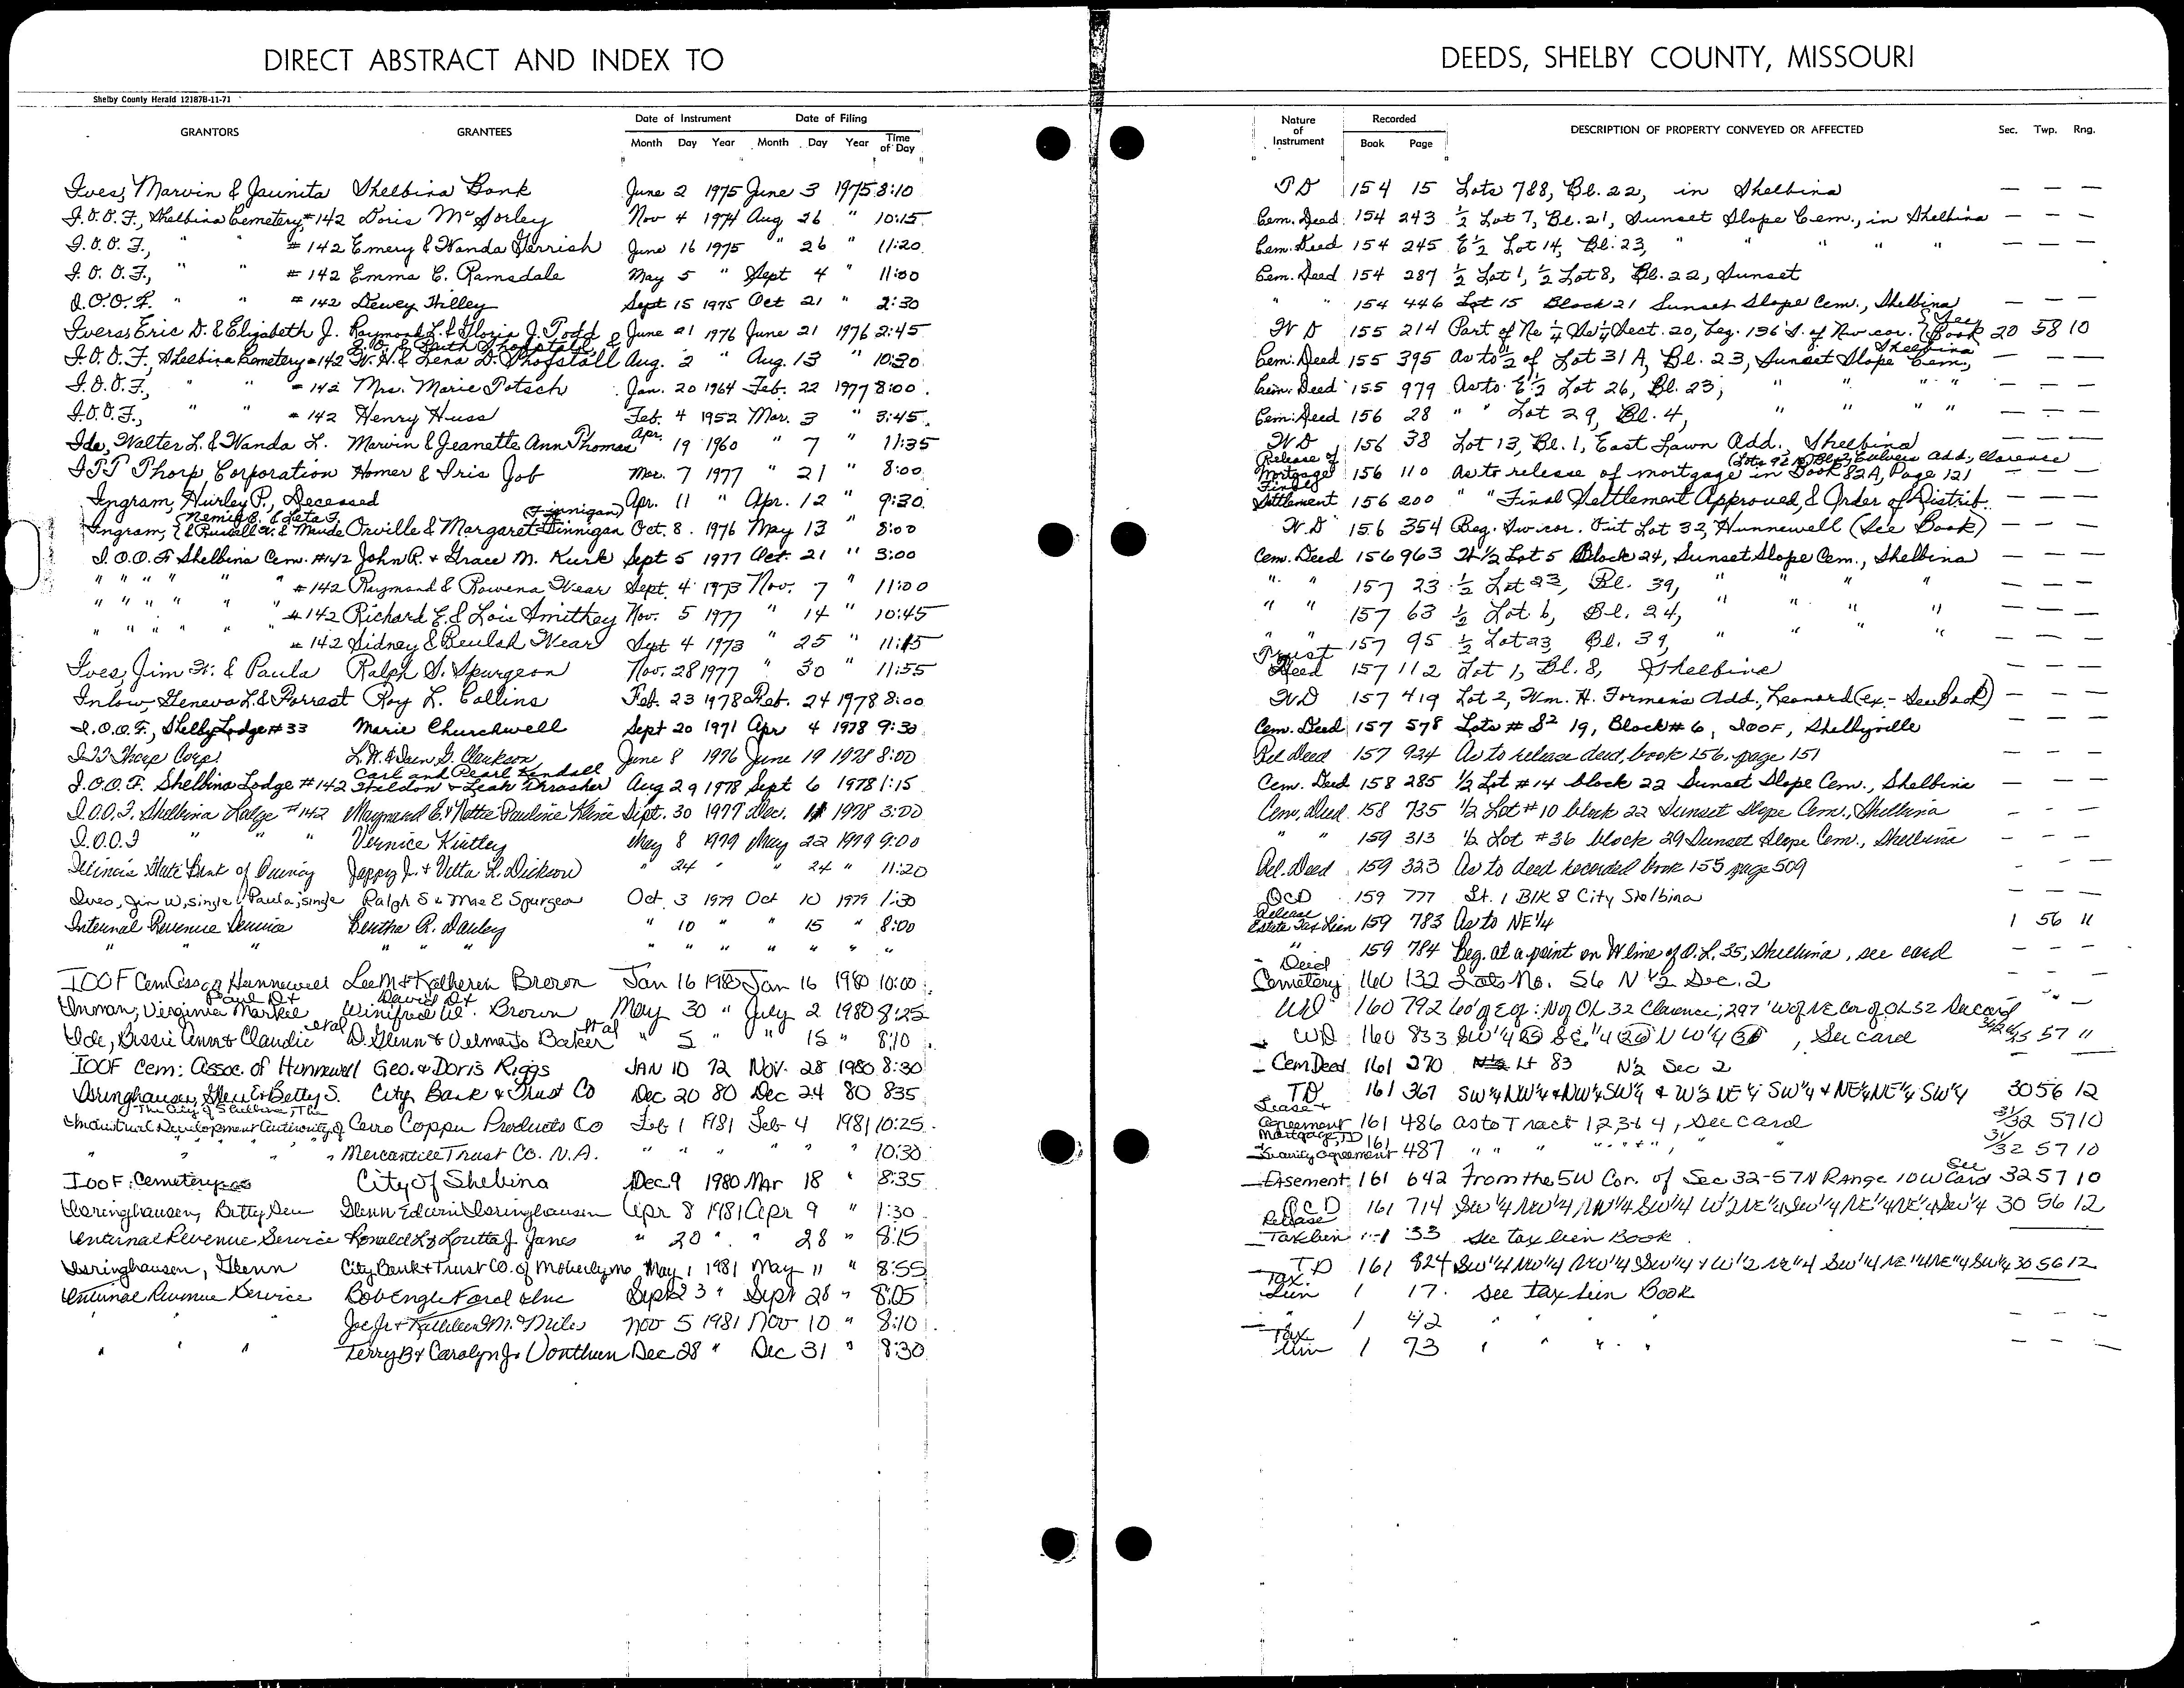 DIRECT ABSTRACT AND INDEX TO DEEDS, SHELBY COUNTY, MISSOURI
Shelby County Herald 12187B-11-71
GRANTORS GRANTEES Date of Instrument Date of Filing Nature of Instrument Recorded DESCRIPTION OF PROPERTY CONVEYED OR AFFECTED Sec. Twp. Rng.
Month Day Year Month Day Year Time of Day Book Page
Ives, Marvin & Jaunita Shelbina Bank June 2 1975 June 3 1975 8:10 TD 154 15 Lots 7&8, Bl. 22, in Shelbina — — —
I.O.O.F., Shelbina Cemetery #142 Doris McSorley Nov 4 1974 Aug 26 " 10:15 Cem. Deed 154 243 ½ Lot 7, Bl. 21, Sunset Slope Cem., in Shelbina — — —
I.O.O.F., " " #142 Emery & Wanda Gerrish June 16 1975 " 26 " 11:20 Cem. Deed 154 245 E½ Lot 14, Bl. 23, " " " " " — — —
I.O.O.F., " " #142 Emma C. Ramsdale May 5 " Sept 4 " 11:00 Cem. Deed 154 287 ½ Lot 1, ½ Lot 8, Bl. 22, Sunset
I.O.O.F. " " #142 Dewey Hilley Sept 15 1975 Oct 21 " 2:30 " " 154 446 Lot 15 Block 21 Sunset Slope Cem., Shelbina — — —
Iverss Eric D. & Elizabeth J. Raymond L. & Gloria J. Todd & June 21 1976 June 21 1976 2:45 WD 155 214 Part of Ne ¼ Sw ¼ Sect. 20, beg. 136' S. of Nw cor. (See Book) 20 58 10
I.O.O.F., Shelbina Cemetery #142 W. H. & Lena D. Shofstall Aug. 2 " Aug. 13 " 10:30 Cem. Deed 155 395 As to ½ of Lot 31 A, Bl. 23, Sunset Slope Cem., Shelbina — — —
I.O.O.F., " " #142 Mrs. Marie Potsch Jan. 20 1964 Feb. 22 1977 8:00 Cem. Deed 155 979 As to E½ Lot 26, Bl. 23, " " " " — — —
I.O.O.F., " " #142 Henry Huss Feb. 4 1952 Mar. 3 " 3:45 Cem. Deed 156 28 " " Lot 29, Bl. 4, " " " " — — —
Ide, Walter L. & Wanda L. Marvin & Jeanette Ann Thomas Apr. 19 1960 " 7 " 11:35 WD 156 38 Lot 13, Bl. 1, East Lawn Add. Shelbina — — —
ITT Thorp Corporation Homer & Iris Job Mar. 7 1977 " 21 " 8:00 Release of Mortgage 156 110 As to release of mortgage in Book 82A, Page 121 — — —
Ingram, Hurley P., Deceased Apr. 11 " Apr. 12 " 9:30 Final Settlement 156 200 " " Final Settlement Approved, & Order of Distrib.
Ingram, & Russell A. & Maude Orville & Margaret Finnigan (Finnigan) Oct. 8. 1976 May 13 " 8:00 W.D 156 354 Beg. Sw cor. Out Lot 32, Hunnewell (See Book) — — —
I.O.O.F Shelbina Cem. #142 John R. + Grace M. Kirk Sept 5 1977 Oct. 21 " 3:00 Cem. Deed 156 963 W ½ Lot 5 Block 24, Sunset Slope Cem., Shelbina — — —
" " " " " " #142 Raymond & Rowena Wear Sept. 4 1973 Nov. 7 " 11:00 " " 157 23 ½ Lot 23, Bl. 39, " " " " — — —
" " " " " " #142 Richard E. & Lois Smithey Nov. 5 1977 " 14 " 10:45 " " 157 63 ½ Lot 6, Bl. 24, " " " " — — —
" " " " " " #142 Sidney & Beulah Wear Sept 4 1973 " 25 " 11:15 " " 157 95 ½ Lot 23 Bl. 39, " " " — — —
Ives, Jim W. & Paula Ralph S. Spurgeon Nov. 28 1977 " 30 " 11:55 Trust Deed 157 112 Lot 1, Bl. 8, Shelbina — — —
Inlow, Geneva L. & Forrest Roy L. Collins Feb. 23 1978 Feb. 24 1978 8:00 WD 157 419 Lot 2, Wm. H. Forman's Add., Leonard (ex.- See Book) — — —
I.O.O.F., Shelby Lodge #33 Marie Churchwell Sept 20 1971 Apr 4 1978 9:30 Cem. Deed 157 578 Lots # 19, Block #6, IOOF, Shelbyville — — —
ITT Thorp Corp. Clarkson June 8 1976 June 19 1978 8:00 Rel Deed 157 924 As to release deed, book 156, page 151
I.O.O.F. Shelbina Lodge #142 Carl and Pearl Kendall Sheldon + Leah Thrasher Aug 29 1978 Sept 6 1978 1:15 Cem. Deed 158 285 ½ Lot #14 block 22 Sunset Slope Cem., Shelbina — — —
I.O.O.F. Shelbina Lodge #142 Raymond E. & Nettie Pauline Kline Sept. 30 1977 Dec. 11 1978 3:00 Cem. Deed 158 735 ½ Lot #10 block 22 Sunset Slope Cem., Shelbina — — —
I.O.O.F " " " Vernice Kirtley May 8 1979 May 22 1979 9:00 " " 159 313 ½ Lot #36 block 29 Sunset Slope Cem., Shelbina — — —
Illinois State Bank of Quincy L. Dickson " 24 " " 24 " 11:20 Rel. Deed 159 323 As to deed recorded book 155 page 509 — — —
Ives, Jim W, single, Paula, single Ralph S & Mae E Spurgeon Oct 3 1979 Oct 10 1979 1:30 QCD 159 777 Lt. 1 Blk 8 City Shelbina
Internal Revenue Service Bertha R. " 10 " " 15 " 8:00 Release Estate Tax Lien 159 783 As to NE¼ 1 56 11
" " " " " " " " " " " " " 159 784 Beg. at a point on W line of O.L. 35, Shelbina, see card — — —
IOOF Cem Hunnewell Lee M & Katheren Brown Jan 16 1980 Jan 16 1980 10:00 Deed Cemetery 160 132 Lots No. 56 N ½ Sec. 2 — — —
Inman, Virginia Markel Paul D + David D + Winifred Brown May 30 " July 2 1980 8:25 WD 160 792 Clarence; 297' W of NE Cor of OL 32 See card
Ide, Bessie Ann & Claudie et al D. Glenn & Velma Jo Baker et al " 5 " " 15 " 8:10 WD 160 833 , See card 57 11
IOOF Cem: Assoc. of Hunnewell Geo. & Doris Riggs JAN 10 72 Nov. 28 1980 8:30 Cem Deed 161 270 Lt 83 N½ Sec 2
Isringhausen, Glen E & Betty S. City Bank & Trust Co Dec 20 80 Dec 24 80 835 TD 161 367 SW¼ NW¼ + NW¼ SW¼ & W½ NE¼ SW¼ + NE¼ NE¼ SW¼ 30 56 12
Industrial Development Authority of The City of Shelbina, The Cerro Copper Products Co Feb 1 1981 Feb 4 1981 10:25 Lease & Agreement 161 486 as to Tract 1,2,3 & 4, See card 31/32 57 10
" " " " Mercantile Trust Co. N.A. " " " " " 10:30 Mortgage, TD & Security Agreement 161 487 " " " " " " " 31/32 57 10
IOOF: Cemetery City of Shelbina Dec 9 1980 Mar 18 " 8:35 Easement 161 642 From the SW Cor. of Sec 32-57N Range 10W See Card 32 57 10
Isringhausen, Betty Sue Glenn Edwin Isringhausen Apr 8 1981 Apr 9 " 1:30 QCD 161 714 SW¼ NW¼ NW¼ SW¼ W½ NE¼ SW¼ NE¼ NE¼ SW¼ 30 56 12
Internal Revenue Service Ronald L & Loretta J Janes " 20 " " 28 " 8:15 Release Tax lien 33 See tax lien Book
Isringhausen, Glenn City Bank & Trust Co. of Moberly Mo May 1 1981 May 11 " 8:55 TD 161 824 SW¼ NW¼ NW¼ SW¼ + W½ NE¼ SW¼ NE¼ NE¼ SW¼ 30 56 12
Internal Revenue Service Bob Engle Ford Inc Sept 23 " Sept 28 " 8:05 Tax Lien 1 17. See tax lien Book
Joe Jr + Kathleen M. Miles Nov 5 1981 Nov 10 " 8:10 " 1 42 " " " " — — —
" " " Terry B & Carolyn J. Vonthun Dec 28 " Dec 31 " 8:30 Tax Lien 1 73 " " " " — — —